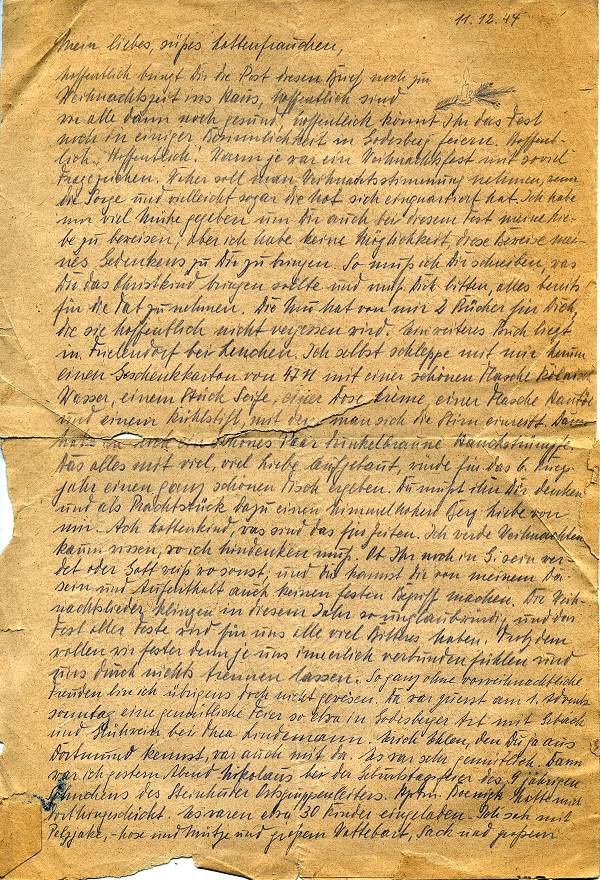 11.12.44
Mein liebes, süßes Lottenfrauchen,
hoffentlich bringt Dir die Post diesen Brief noch zur
Weihnachtszeit ins Haus, hoffentlich sind
wir alle dann noch gesund, hoffentlich könnt Ihr das Fest
noch in einiger Besinnlichkeit in Godesberg feiern. Hoffent-
lich, Hoffentlich! Wann je war ein Weihnachtsfest mit soviel
Fragezeichen. Woher soll man Weihnachtsstimmung nehmen, wenn
die Sorge und vielleicht sogar die Not sich einquartiert hat. Ich habe
mir viel Mühe gegeben um Dir auch bei diesem Fest meine Lie-
be zu beweisen, aber ich habe keine Möglichkeit, diese Beweise mei-
nes Gedenkens zu Dir zu bringen. So muß ich Dir schreiben, was
Dir das Christkind bringen sollte und muß Dich bitten, alles bereits
für die Tat zu nehmen. Die Mu hat von mir 2 Bücher für Dich,
die sie hoffentlich nicht vergessen wird. Ein weiteres Buch liegt
in Frielendorf bei Lenchen. Ich selbst schleppe mit mir herum
einen Geschenkkarton von 4711 mit einer schönen Flasche Kölnisch
Wasser, einem Stück Seife, einer Dose Creme, einer Flasche
und einem Kühlstift, mit dem man sich die Stirn einreibt. Dann
schönes Paar dunkelbraune
Das alles mit viel, viel Liebe aufgebaut, würde für das 6. Kriegs-
jahr einen ganz schönen Tisch ergeben. Du mußt ihn Dir denken
und als Prachtstück dazu einen himmelhohen Berg Liebe von
mir. Ach Lottenkind, was sind das für Zeiten. Ich werde Weihnachten
kaum wissen, wo ich hindenken muß. Ob Ihr noch in G. sein wer-
det oder Gott weiß wo sonst, und Du kannst dir von meinem Da-
sein und Aufenthalt auch keinen festen Begriff machen. Die Weih-
nachtslieder klingen in diesem Jahr so unglaubwürdig, und das
Fest aller Feste wird für uns alle viel Bitteres haben. Trotzdem
wollen wir fester denn je uns innerlich verbunden fühlen und
uns durch nichts trennen lassen. So ganz ohne vorweihnachtliche
Freuden bin ich übrigens doch nicht gewesen. Da war zuerst am 1. Advents
sonntag eine gemütliche Feier so etwa in Godesberger Art mit Gebäck
und Glühwein bei Thea Lindemann. Erich Ehlen, den Du ja aus
Dortmund kennst, war auch mit da. Es war sehr gemütlich. Dann
war ich gestern Abend Nikolaus bei der Geburtstagsfeier des 9 jährigen
des Steinhuder Ortsgruppenleiters. hatte mich
Es waren etwa 30 Kinder eingeladen. Ich sah mit
Pelzjacke, -hose und Mütze und großem Wattebart, Sack und großem